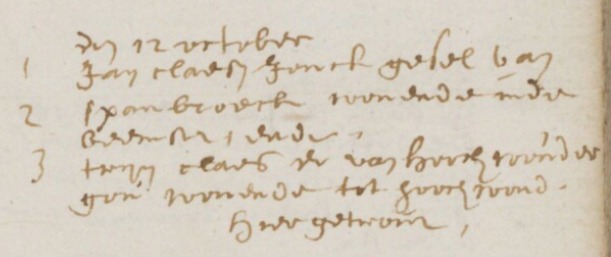 den 12 october
1 Jan claesz Jonck gesel van
2 spanbroeck wonende inde
beemster, ende
3 trijn claes dr van hooch wouder
gou wonende tot hoochwoud.
hier getrout,